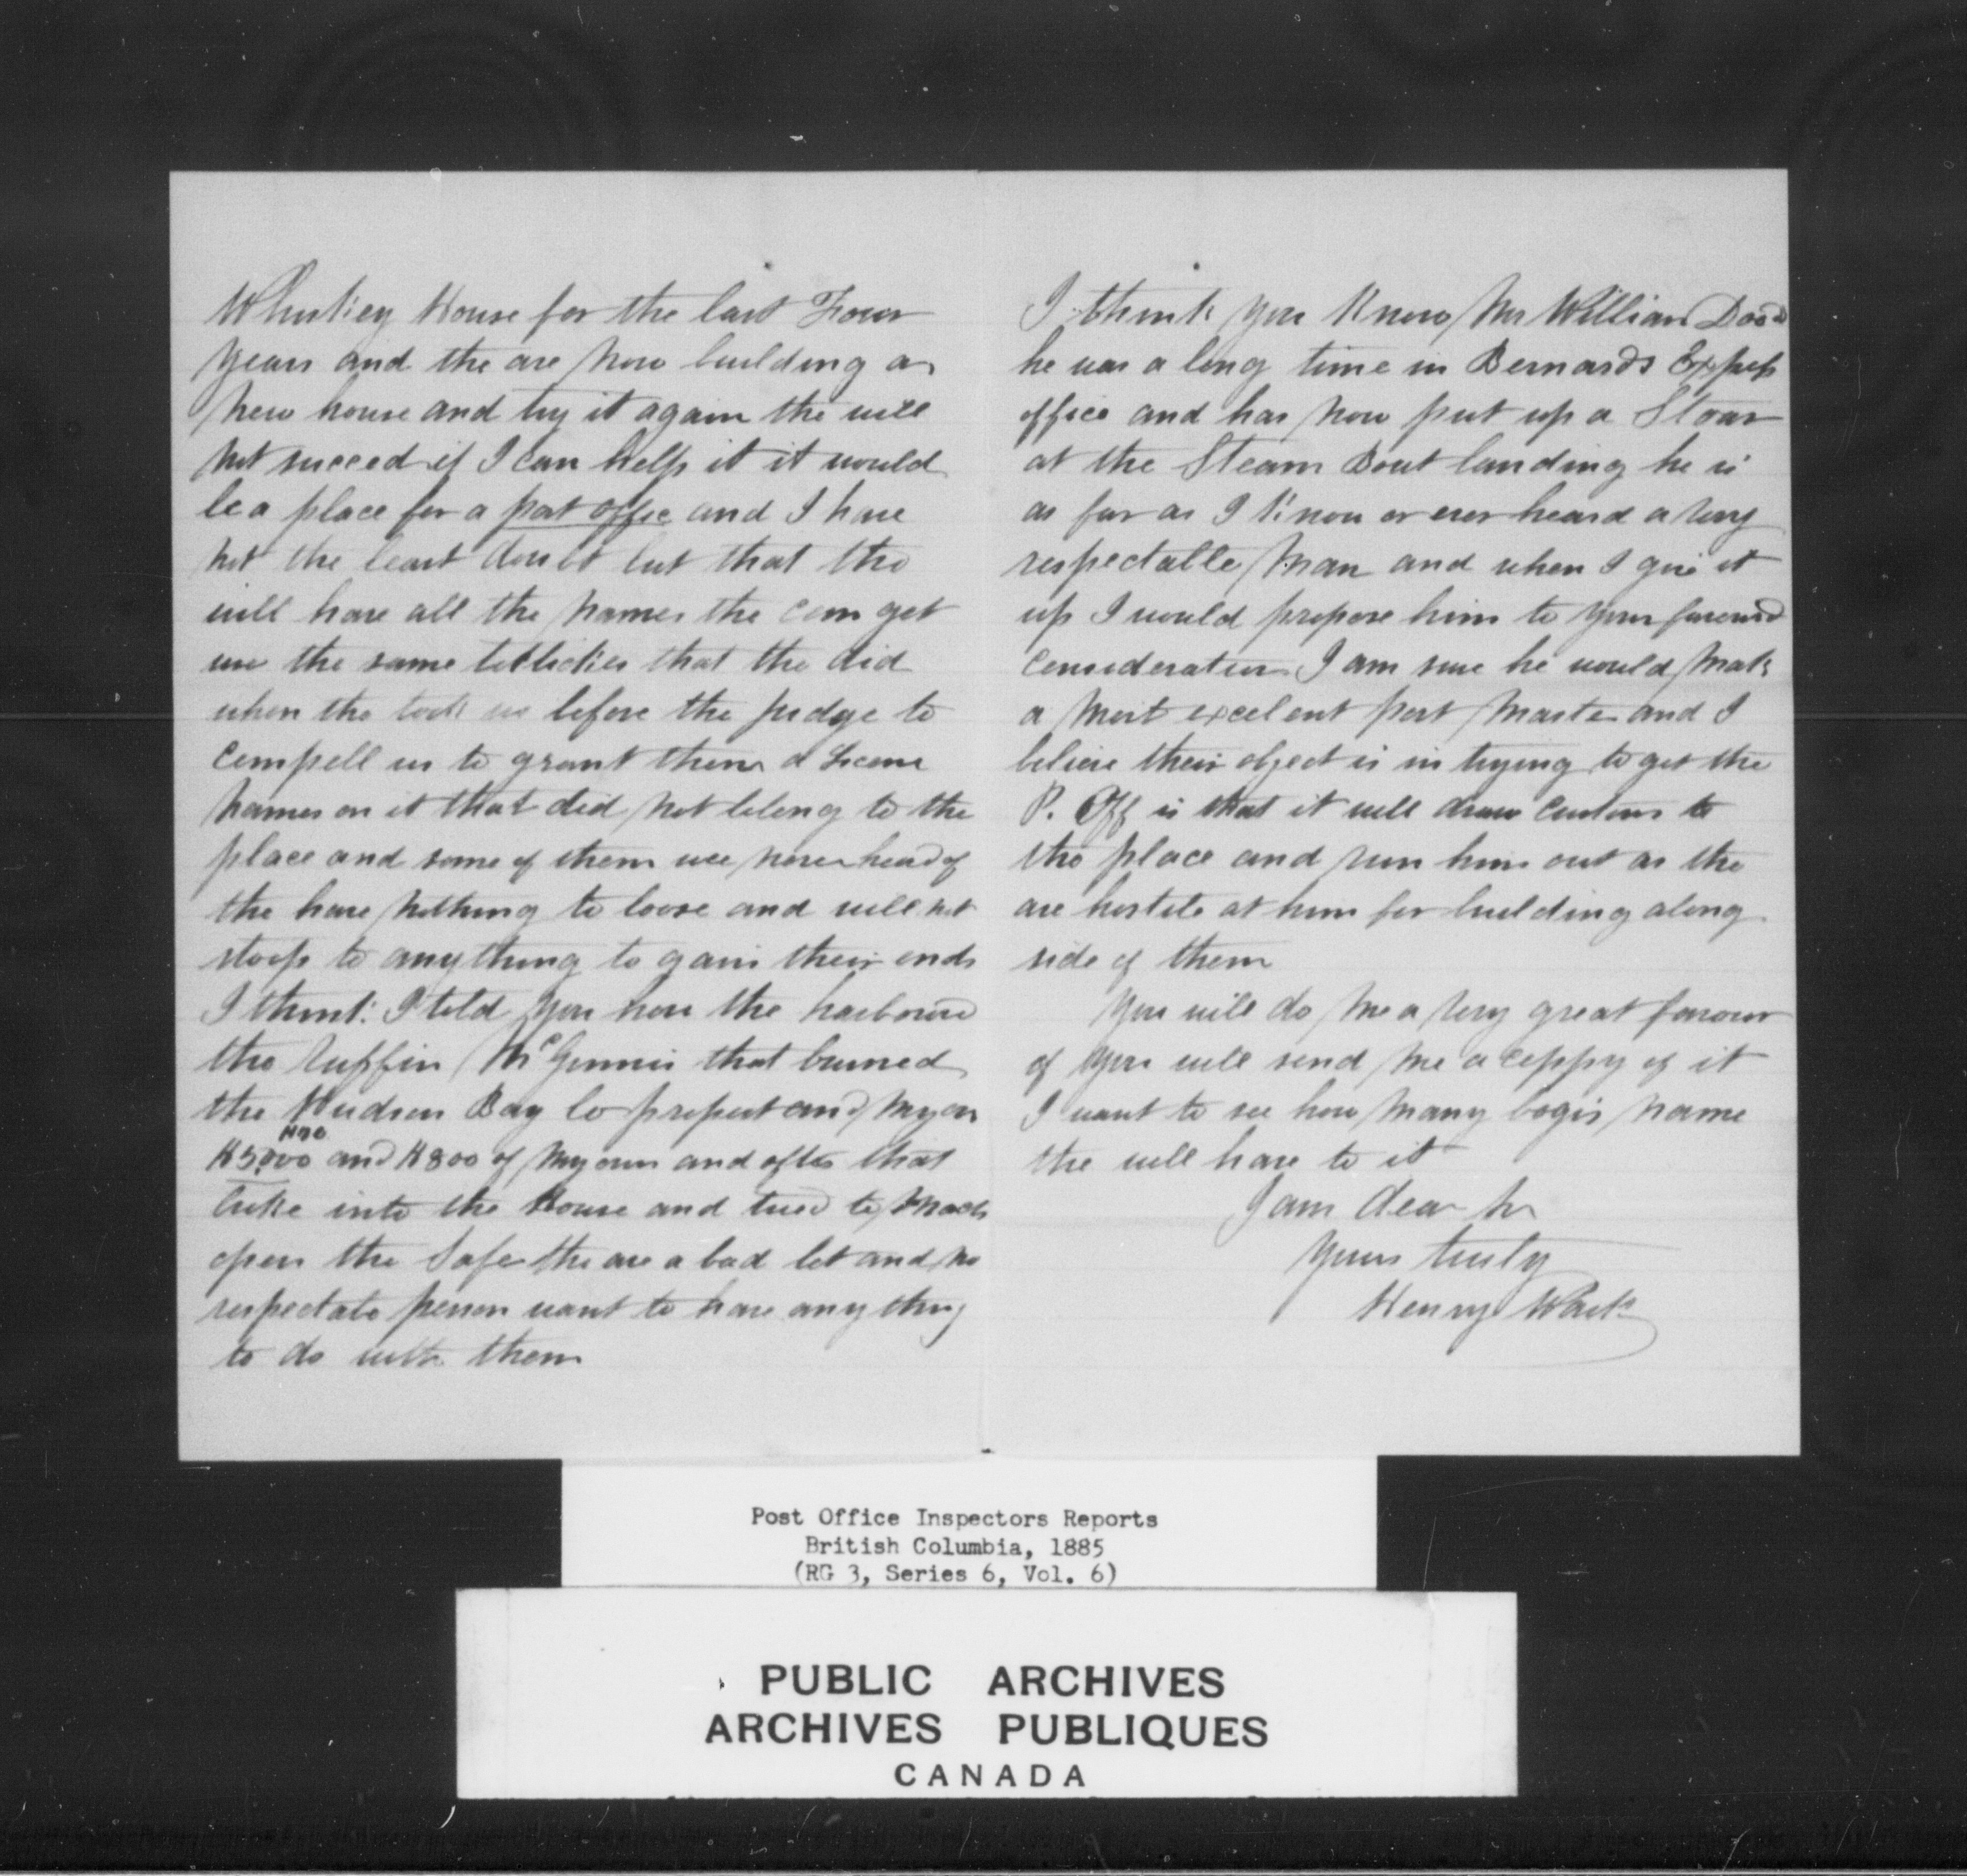 Whiskey House for the last Four
years and the are now building a
new house and try it again the will
not succeed if I can help it it would
be a place for a post offic and I have
not the least doubt but that the
will have all the names the can get
use the same that the did
when the took us before the judge to
compell us to grant them a
names on it that did not belong to the
place and some of them we never head of
the have nothing to loose and will not
stoop to anything to gain their ends
I think I told you how the harboured
the ruffin McGinnis that burned
the Hudson Bay Co propert and my on
and $800 of my own and after that
into the House and tried to
open the Safe the are a bad lot and no
respectabe person want to have anything
to do with them
I think you Know Mr William Dodd
he was a long time in Bernards Express
office and has now put up a Stoar
at the Steam Boat landing he is
as far as I know or ever heard a very
respectable man and when I give it
up I would propose him to your
consideration I am sure he would make
a most excelent post master and I
believe their object is in trying to get the
P. Off is that it will draw custom to
the place and run him out as the
are hostile at him for building along
side of them
You will do me a very great favour
of you will send me a coppy of it
I want to see how many bogis name
the will have to it
I am dear Sir
Yours truly
Henry Wark
Post Office Inspectors Reports
British Columbia, 1885
(RG 3, Series 6, Vol. 6)
PUBLIC ARCHIVES
ARCHIVES PUBLIQUES
CANADA